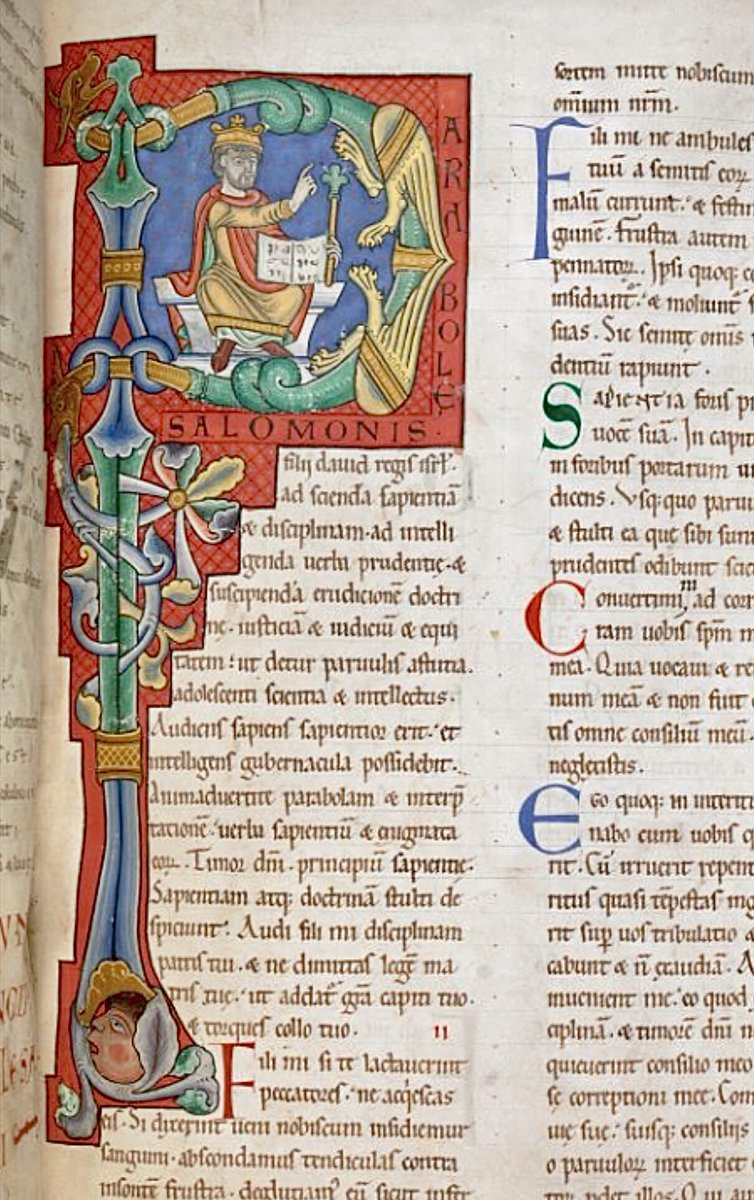 PARABOLĘ
SALOMONIS.
filij dauid regis isrl̄.
ad sciendā sapientiā
& disciplinam. ad intelli
genda uerba prudentię. &
suscipiendā erudicionē doctri
ne. iusticiā & iudiciū & equi
tatem: ut detur paruulis astutia.
adolescenti scientia & intellectus.
Audiens sapiens sapientior erit. et
intelligens gubernacula possidebit.
Animaduertite parabolam & interp̄
tationē. uerba sapientiū & enigmata
eoꝝ. Timor dn̄i. principiū sapientie.
Sapientiam atq; doctrinā stulti de
spiciunt. Audi fili mi disciplinam
patris tui. & ne dimittas legē ma
tris tuę. ut addat᷑ gr̄a capiti tuo.
& torques collo tuo. II
Fili mi si te lactauerint
peccatores. ne acq̇escas
eis. Si dixerint ueni nobiscum insidiemur
sanguini. abscondamus tendiculas contra
insontē frustra. deglutiam᷑ eū sicut infer
sortem mitte nobiscum
omnium nrm̄.
Fili mi ne ambules
tuū a semitis eoꝝ
malū currunt. & festi
guinē. Frustra autem
pennatoꝝ. Ipsi quoq; co
insidiant᷑. & moliunt᷑
suas. Sic semitę omīs
dentiū rapiunt.
Sapientia foris pr
uocē suā. In capit
in foribus portarum u
dicens. Vsq;quo paruu
& stulti ea que sibi sunt
prudentes odibunt scie
Conuertimīm ad corr
ram uobis spm̄ m
mea. Quia uocaui & re
num meā & non fuit q
tis omne consiliū meū.
neglexistis.
Ego quoq; in interitu
nabo cum uobis q
rit. Cū irruerit repent
ritus quasi tēpestas ing
rit sup̱ uos tribulatio &
cabunt & n̄ exaudiā.
inuenient me. eo quod
ciplinā. & timorē dn̄i n
quieuerint consilio meo
se correptioni mee. Com
uię suę. suisq; consiliis
o paruuloꝝ interficiet e